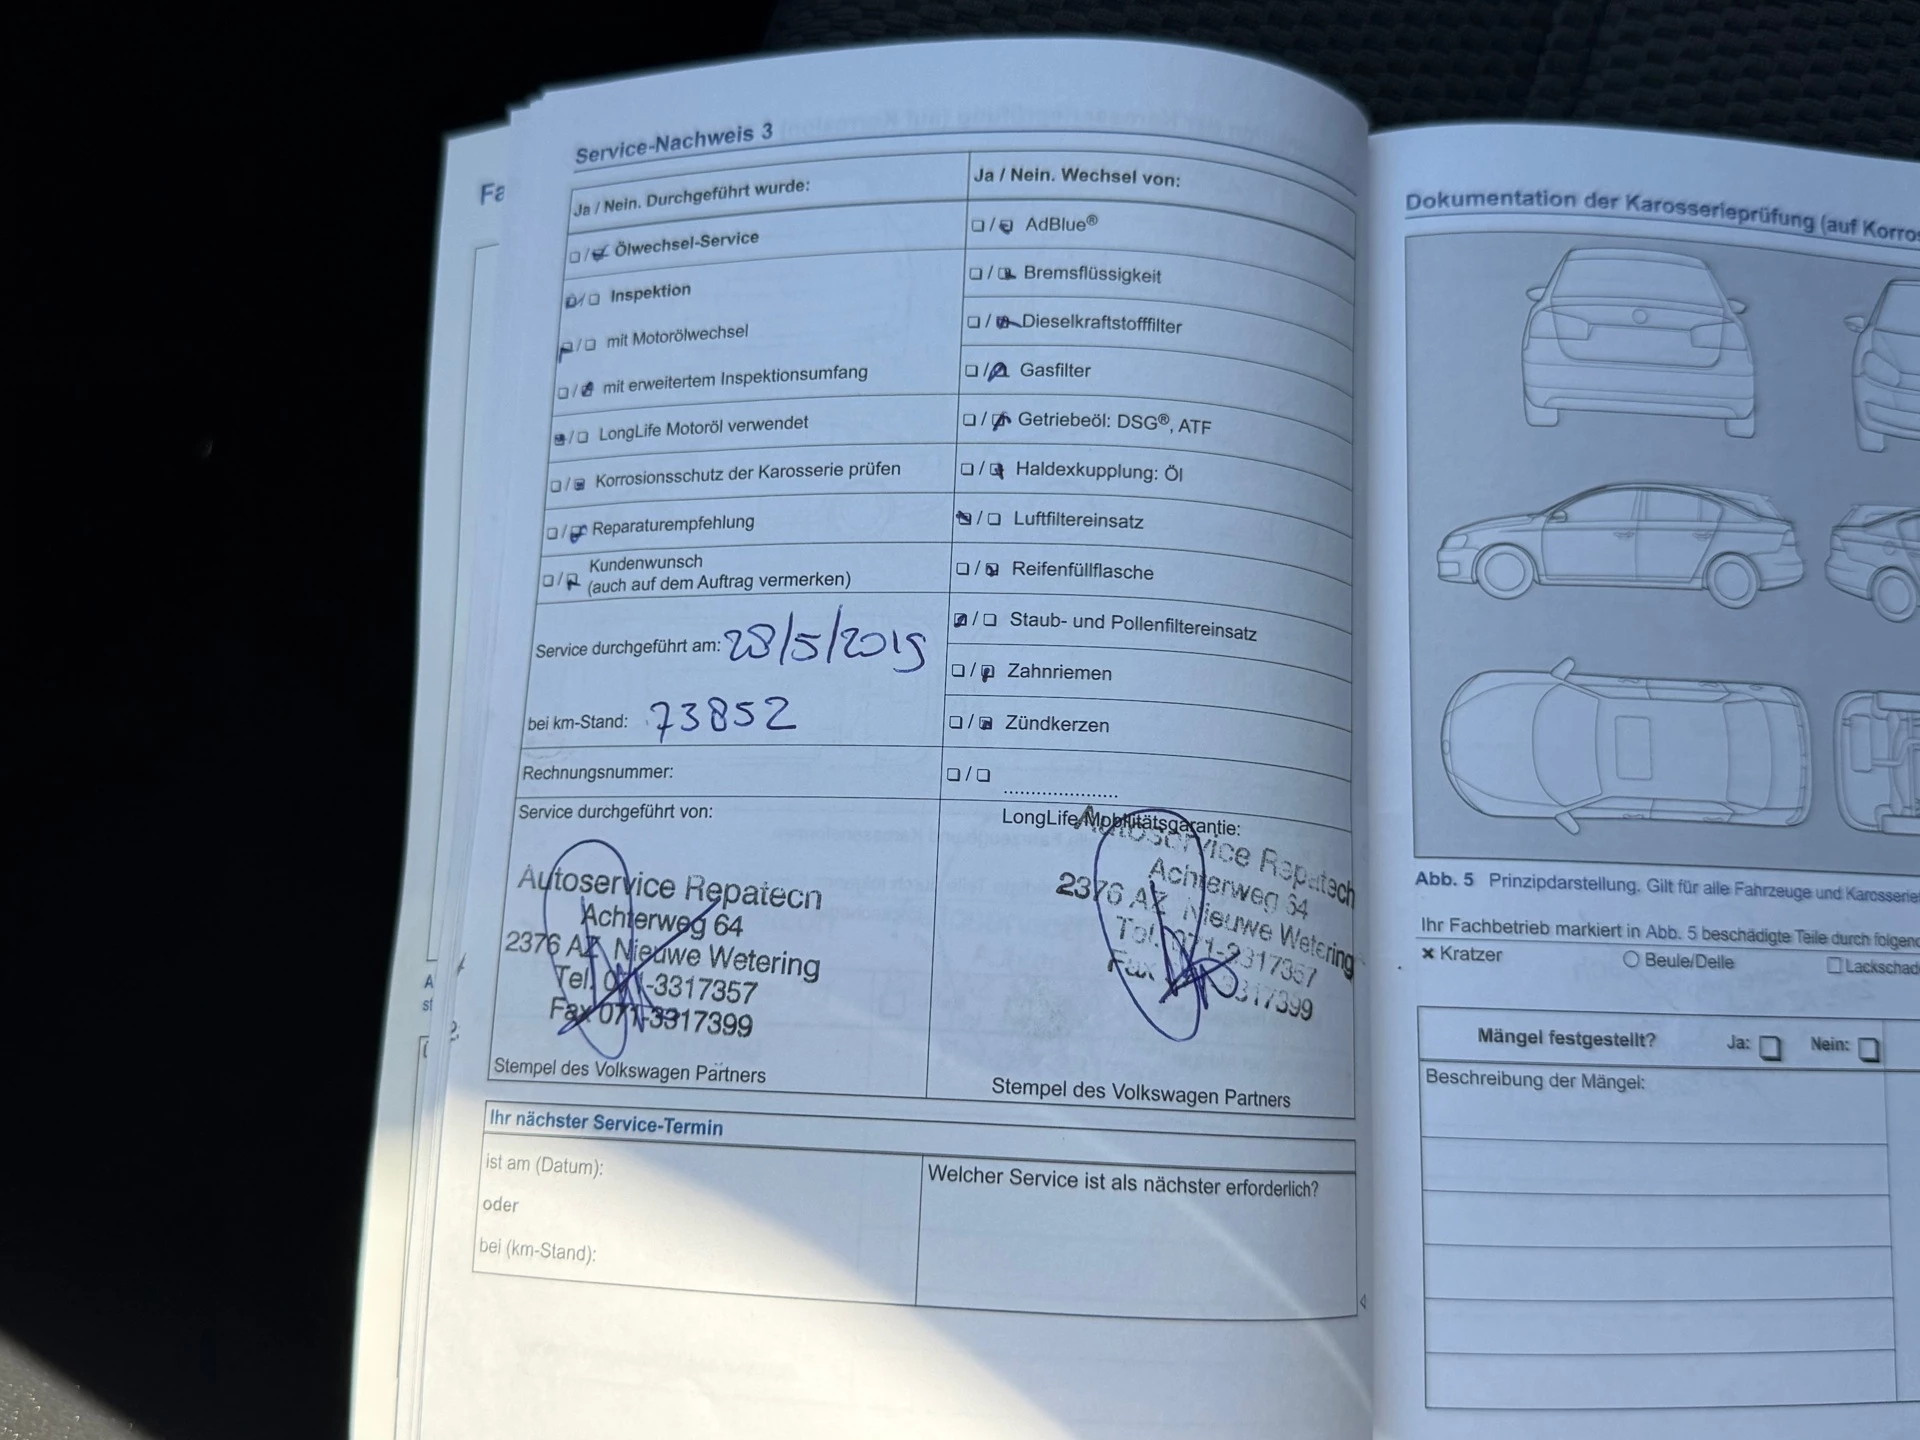 Fa
Service-Nachweis 3
Ja / Nein. Durchgeführt wurde:
Ölwechsel-Service
Inspektion
mit Motorölwechsel
mit erweitertem Inspektionsumfang
LongLife Motoröl verwendet
Korrosionsschutz der Karosserie prüfen
Reparaturempfehlung
Kundenwunsch
(auch auf dem Auftrag vermerken)
Service durchgeführt am: 28/5/2019
bei km-Stand: 73852
Rechnungsnummer:
Ja / Nein. Wechsel von:
AdBlue®
Bremsflüssigkeit
Dieselkraftstofffilter
Gasfilter
Getriebeöl: DSG®, ATF
Haldexkupplung: Öl
Luftfiltereinsatz
Reifenfüllflasche
Staub- und Pollenfiltereinsatz
Zahnriemen
Zündkerzen
Service durchgeführt von:
Autoservice Repatech
Achterweg 64
2376 AZ Nieuwe Wetering
Tel. 071-3317357
Fax 071-3317399
Stempel des Volkswagen Partners
LongLife/Mobilitätsgarantie:
Autoservice Repatech
Achterweg 64
2376 AZ Nieuwe Wetering
Tel. 071-3317357
Fax 071-3317399
Stempel des Volkswagen Partners
Ihr nächster Service-Termin
ist am (Datum):
oder
bei (km-Stand):
Welcher Service ist als nächster erforderlich?
Dokumentation der Karosserieprüfung (auf Korros
Abb. 5 Prinzipdarstellung. Gilt für alle Fahrzeuge und Karosserie
Ihr Fachbetrieb markiert in Abb. 5 beschädigte Teile durch folgend
Kratzer
Beule/Delle
Lackschad
Mängel festgestellt? Ja: Nein:
Beschreibung der Mängel: